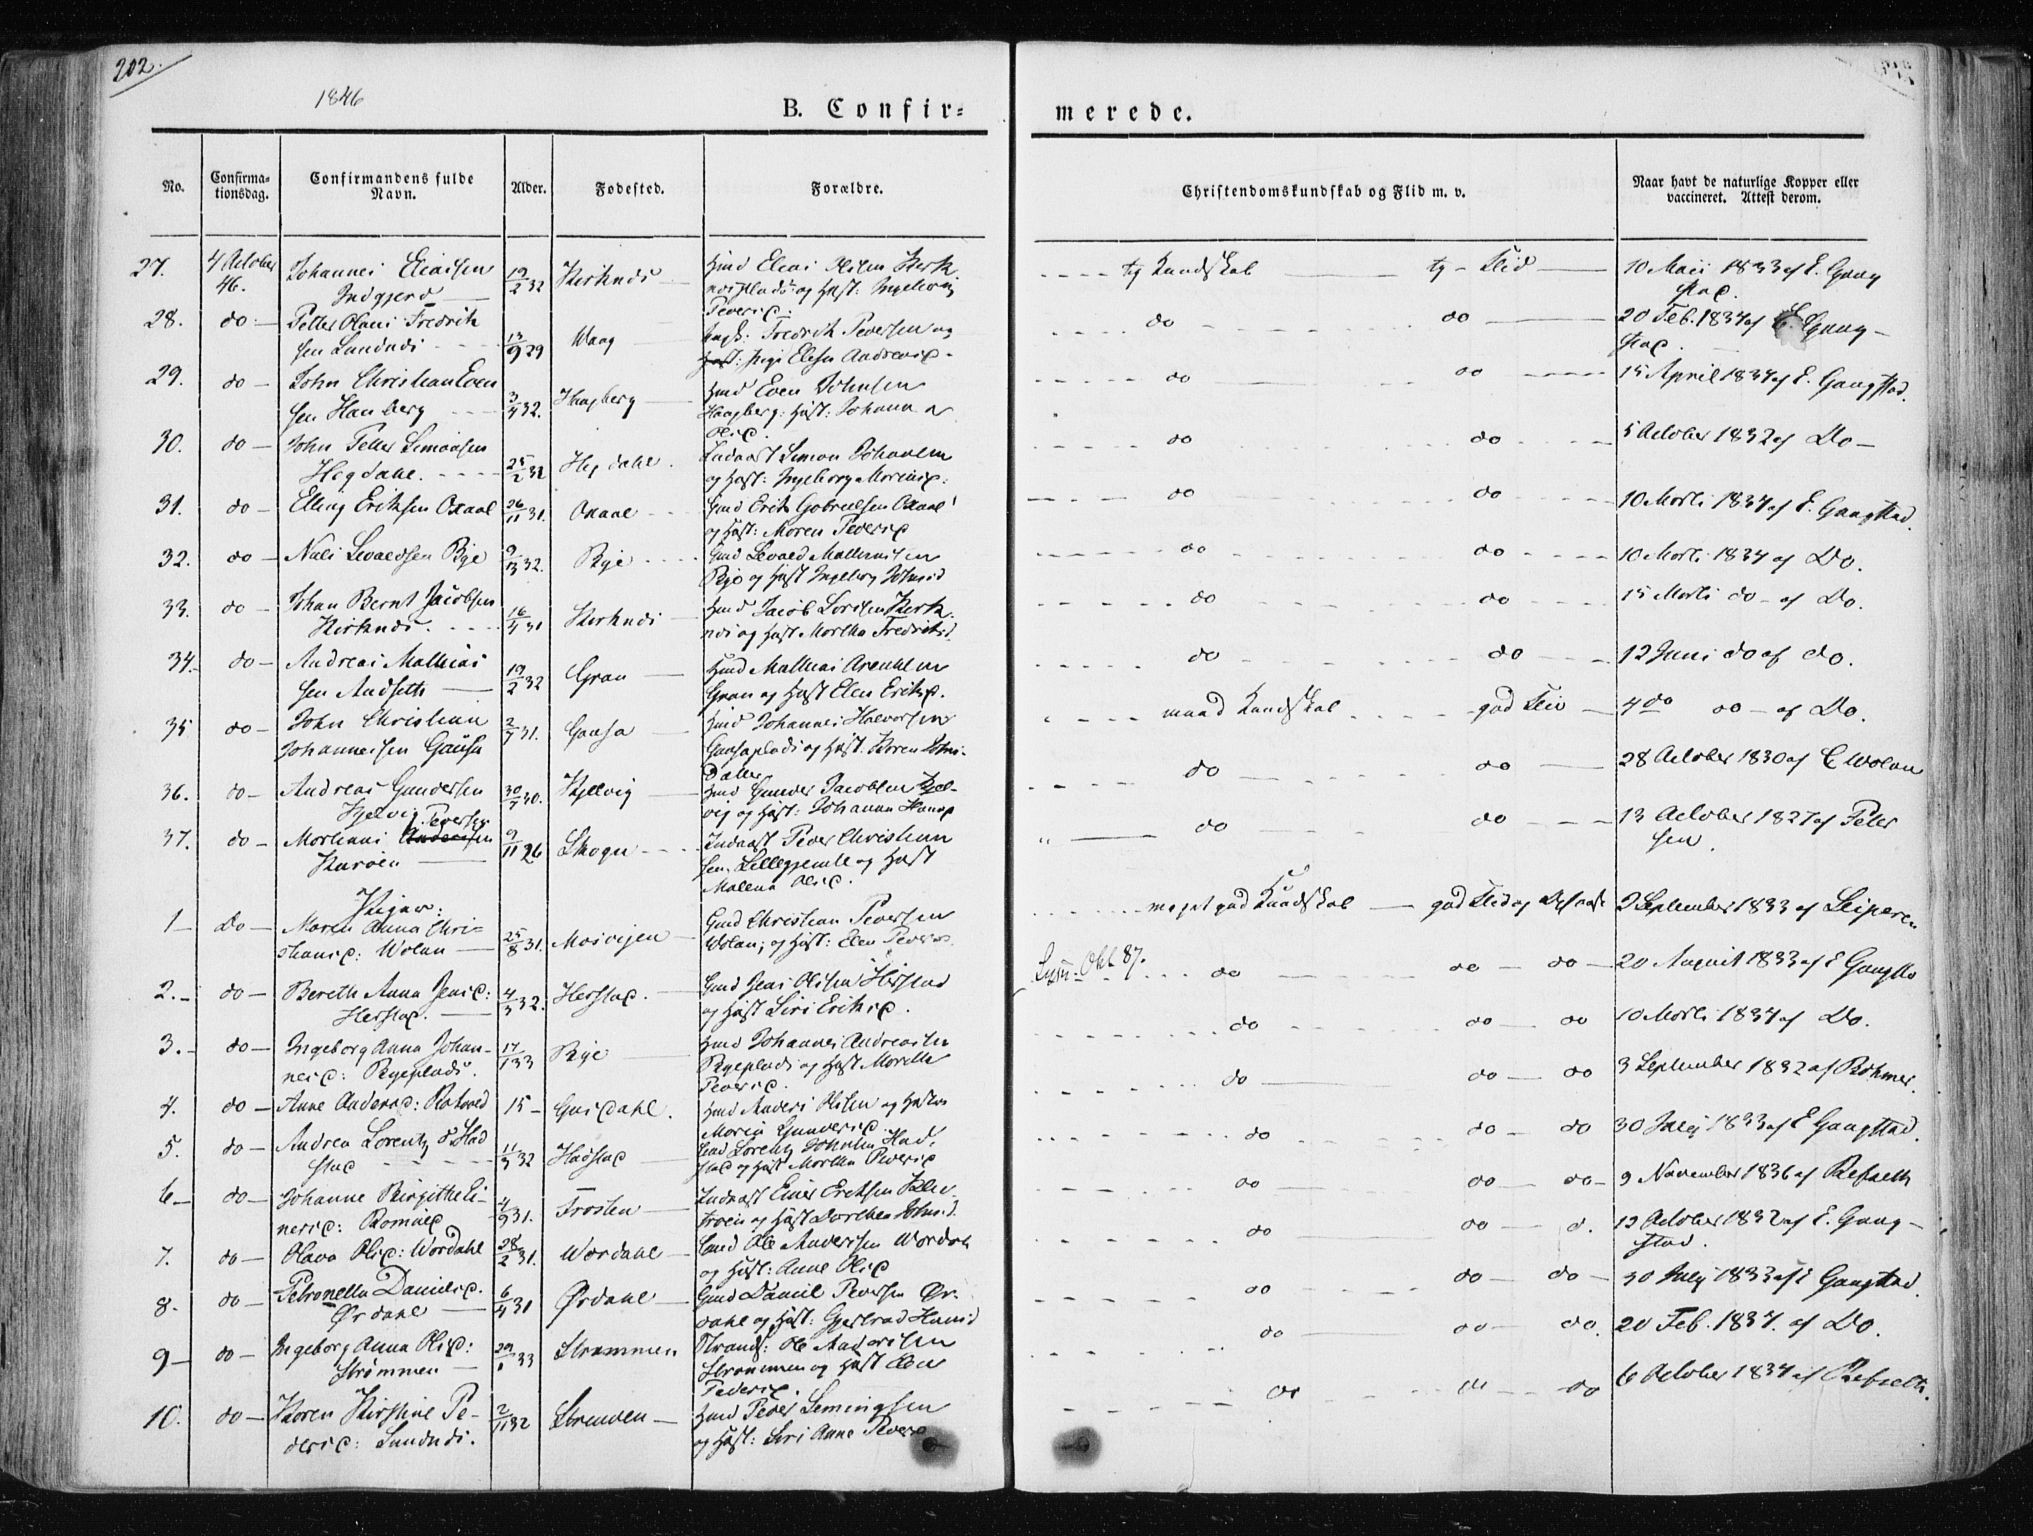 202.
1846
B. Confir=
merede.
No.
Confirma-
tionsdag.
Confirmandens fulde
Navn.
Alder.
Fødested.
Forældre.
Christendomskundskab og Flid m. v.
Naar havt de naturlige Kopper eller
vaccineret. Attest derom.
27. 4 October 46. Johannes Eliassen 19/2 32 Kirknes Hmd Elias Olsen Kirk
tg Kundskab tg Flid 10 Maii 1833 af E. Gang
stad.
28. do Petter Olaus Fredrik
sen Sundnes 13/9 29 Waag Fredrik Pedersen og
do do 20 Feb. 1834 af E. Gang-
stad.
29. do John Christian Even
sen Haugberg 3/4 32. Haagberg Hmd Even Johnsen
Haagberg: Hust: Johanna
Olsd.
do do 15 April 1834 af E. Gangstad.
30. do John Petter Simonsen
Hegdahl. 25/2 32 Hegdahl. Indaast Simon Johansen
og Hust: Ingeborg
do do 5 October 1832 af Do
31. do Elling Eriksen Oxaal 26/11 31. Oxaal Gmd Erik Gabrielsen Oxaal
og Hust: Maren Pedersd
do do 10 Marti 1834 af E. Gangstad.
32. do Nils Sevaldsen Rye 9/13 32. Rye Gmd Sevald
Rye og Hust Ingeborg Johnsd
do do 10 Marti 1834 af Do.
33. do Johan Bernt Jacobsen
Kirknes. 16/4 31 Kirknes Hmd Jacob Kirk
nes og Hust Martha Fredriksd.
do do 15 Marti do af Do.
34. do Andreas Mathias
sen Andseth 19/2 32 Gran Hmd Mathias Arentsen
Gran og Hust Elen Eriksd.
do do 12 Juni do af do.
35 do John Christian
Johannessen Gausen 2/7 31. Gausa Hmd Johannes Halvorsen
Gausaplads og Hust: Karen Johns-
Datter
maad Kundskab god Flid 4 do do af Do.
36. do Andreas Gundersen
Hjelvig 30/7 30. Kjelvig Hmd Gunder Jacobsen Kjel-
vig og Hust: Johanna
do do 28 October 1830 af C Wolan
37. do Morthans Andersen Pedersen
9/11 26 Skogn Indaast Peder Christian
sen og Hust
Malena Olsd.
do do 13 October 1827 af Peter
sen.
Piger:
1 Do Maren Anna Chri-
stiansd: Wolan 25/8 31. Mosvigen Gmd Christian Pedersen
Wolan; og Hust: Elen Pedersd.
meget god Kundskab god Flid og 2 September 1833 af
2. do Bereth Anna Jensd:
Herstad. 4/3 32. Herstad. Gmd Jens Olsen Herstad
og Hust Siri Eriksd.
Okt 87. do do do 20 August 1833 af E Gangst
3. do Ingeborg Anna Johan-
nesd: Ryeplads. 17/1 33 Rye Hmd Johannes Andreassen
Ryeplads og Hust Marth
Pedersd.
do do do 10 Marti 1834 af Do.
4. do Anne Andersd: 15 Guldahl. Hmd Anders Olsen og Hustru
Maria Gundersd
do do do 3 September 1832 af Böhmer.
5. do Andrea Lorentz d: Had
stad 11/3 32 Hadstad Gmd Lorentz Johnsen Had,
stad og Hust Martha Pedersd
do do do 30 July 1833 af E Gangstad.
6 do Johanne Birgithe Ei-
nersd: Romul 4/9 31. Frosten Indaast Einer Eriksen
og Hust Dorthea Johnsd.
do do do 9 November 1836 af Refseth
7. do Olava Olsd: Wordahl 28/2 31. Wordahl Gmd Ole Andersen Wordal
og Hust: Anne Olsd
do do d. 13 October 1832 af E. Gang-
stad.
8. do Petronella Danielsd.
Ørdahl 6/4 31 Ørdahl Gmd Daniel Pedersen Ør-
dahl og Hust: Gjertrud Hansd
do do do 30 July 1833 af E Gangstad.
9 do Ingeborg Anna Olsd:
Strømmen 33 Strømmen Strands: Ole Andersen
Strømmen og Hust Elen
Pedersd.
do do do. 20 Feb. 1834. af Do.
10. do Karen Kirstine Pe-
dersd: Sundnes. 2/11 32 Strømmen Hmd Peder Lemingsen
og Hust: Siri Anne Peders
do do do 6 October 1834 af Refseth.